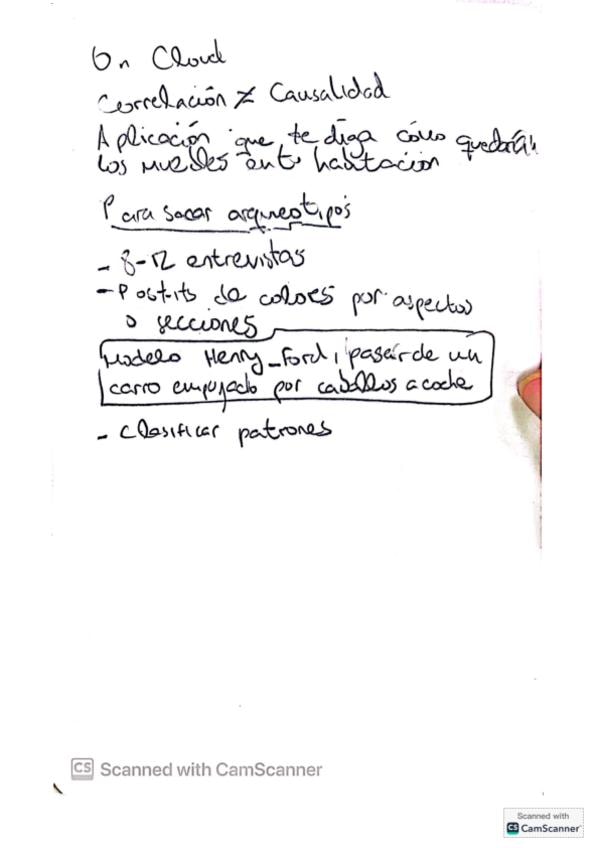 On Cloud
Correlación ≠ Causalidad
Aplicación que te diga cómo quedarían
los muebles en tu habitación
Para sacar arqueotipos
- 8-12 entrevistas
- Postits de colores por aspectos
o secciones
Modelo Henry_Ford, pasar de un
carro empujado por caballos a coche
- Clasificar patrones
CS Scanned with CamScanner
Scanned with
CS CamScanner